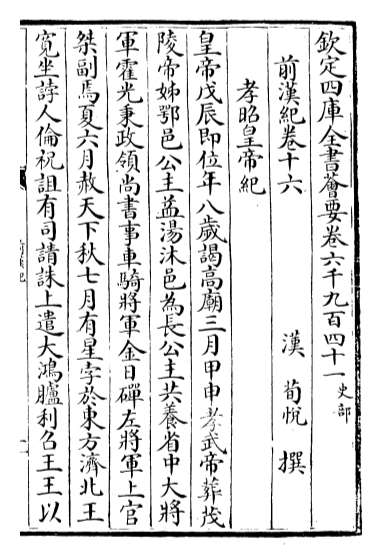 欽定四庫全書薈要卷六千九百四十一史部
前漢紀卷十六
漢荀悅撰
孝昭皇帝紀
皇帝戊辰即位年八歲謁高廟三月甲申孝武帝葬茂
陵帝姊鄂邑公主益湯沐邑為長公主共養省中大將
軍霍光秉政領尚書事車騎將軍金日磾左將軍上官
桀副焉夏六月赦天下秋七月有星孛於東方濟北王
寛坐誖人倫祝詛有司請誅上遣大鴻臚利召王王以